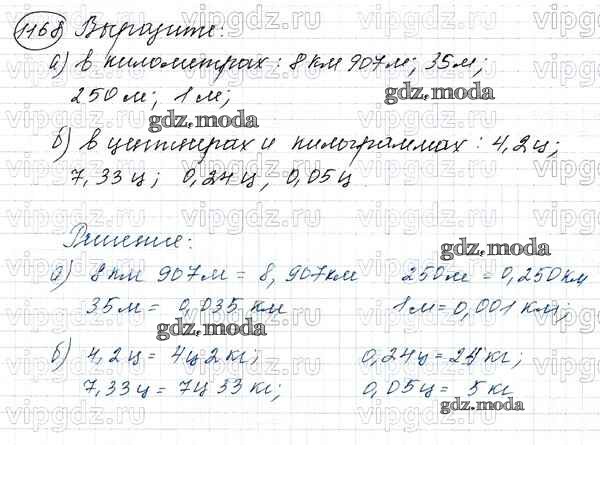 1168 Выразите:
а) в километрах: 8 км 907 м; 35 м;
250 м; 1 м;
gdz.moda
gdz.moda
б) в центнерах и килограммах: 4,2 ц;
7,33 ц; 0,24 ц, 0,05 ц
Решение:
gdz.moda
а) 8 км 907 м = 8,907 км 250 м = 0,250 км
35 м = 0,035 км 1 м = 0,001 км;
gdz.moda
б) 4,2 ц = 4 ц 2 кг; 0,24 ц = 24 кг;
7,33 ц = 7 ц 33 кг; 0,05 ц = 5 кг
gdz.moda
vipgdz.ru